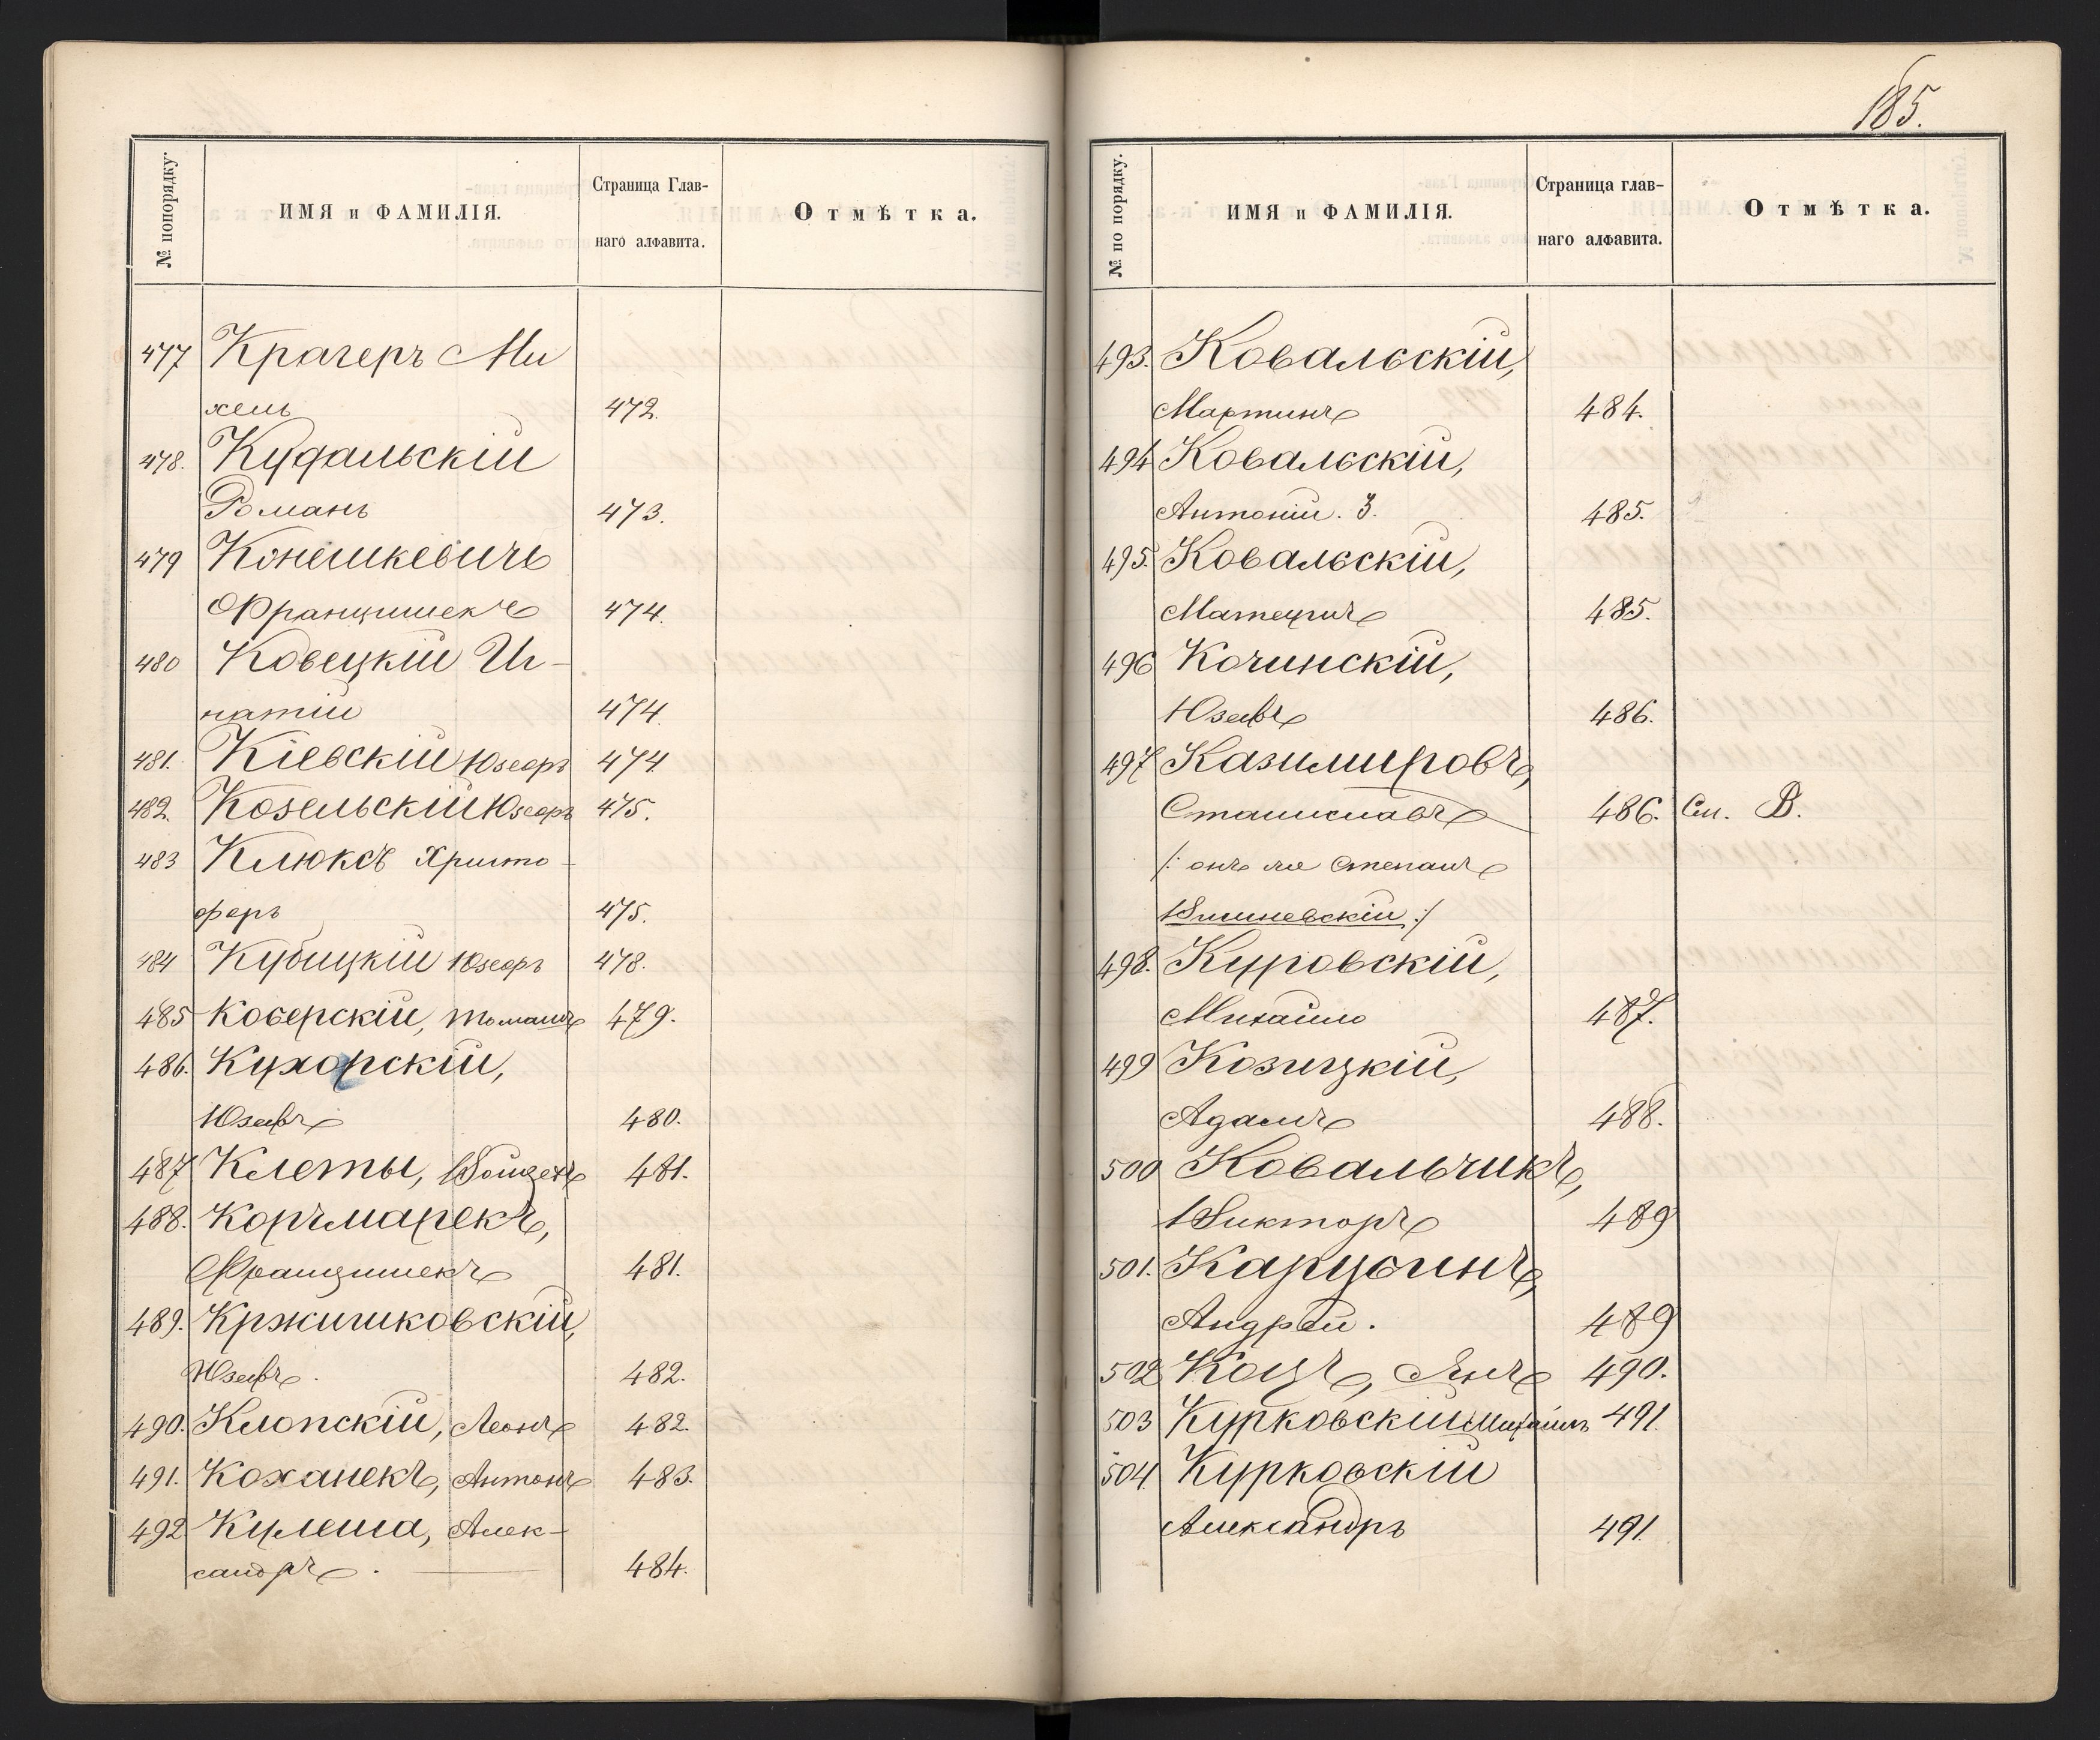 № попорядку.
ИМЯ и ФАМИЛІЯ.
Страница Глав-
наго алфавита.
Отмѣтка.
477 Крагеръ Ми
хель 472.
478. Кудальскій
Романъ 473.
479 Конешкевичъ
Францишекъ 474.
480 Ковецкій Иг-
натій 474.
481. Кіевскій Юзефъ 474
482. Козельскій Юзефъ 475.
483 Клюксъ Христо-
феръ 475.
484 Кубицкій Юзефъ 478.
485 Косерскій, Томашъ 479.
486. Кухорскій,
Юзефъ 480.
487 Клеты, Войцехъ 481.
488. Корчмарекъ,
Францишекъ 481.
489. Кржишковскій,
Юзефъ. 482.
490. Клопскій, Леонъ 482.
491. Коханекъ, Антонъ 483.
492 Кулеша, Алек-
сандръ. 484.
185.
№ по порядку.
ИМЯ и ФАМИЛІЯ.
Страница глав-
наго алфавита.
Отмѣтка.
493. Ковальскій,
Мартинъ 484.
494 Ковальскій,
Антоній. 3. 485.
495. Ковальскій,
Матеушъ 485.
496 Кочинскій,
Юзефъ 486.
497 Казимировъ,
Станиславъ 486. См. В.
/: онъ же Степанъ
Вишневскій :/
498. Куровскій,
Михайло 487.
499 Козицкій,
Адамъ 488.
500 Ковальчикъ,
Викторъ 489
501. Карцовинъ,
Андрей. 489
502 Коцъ, Янъ 490.
503 Курковскій Михаилъ 491.
504. Курковскій
Александръ 491.